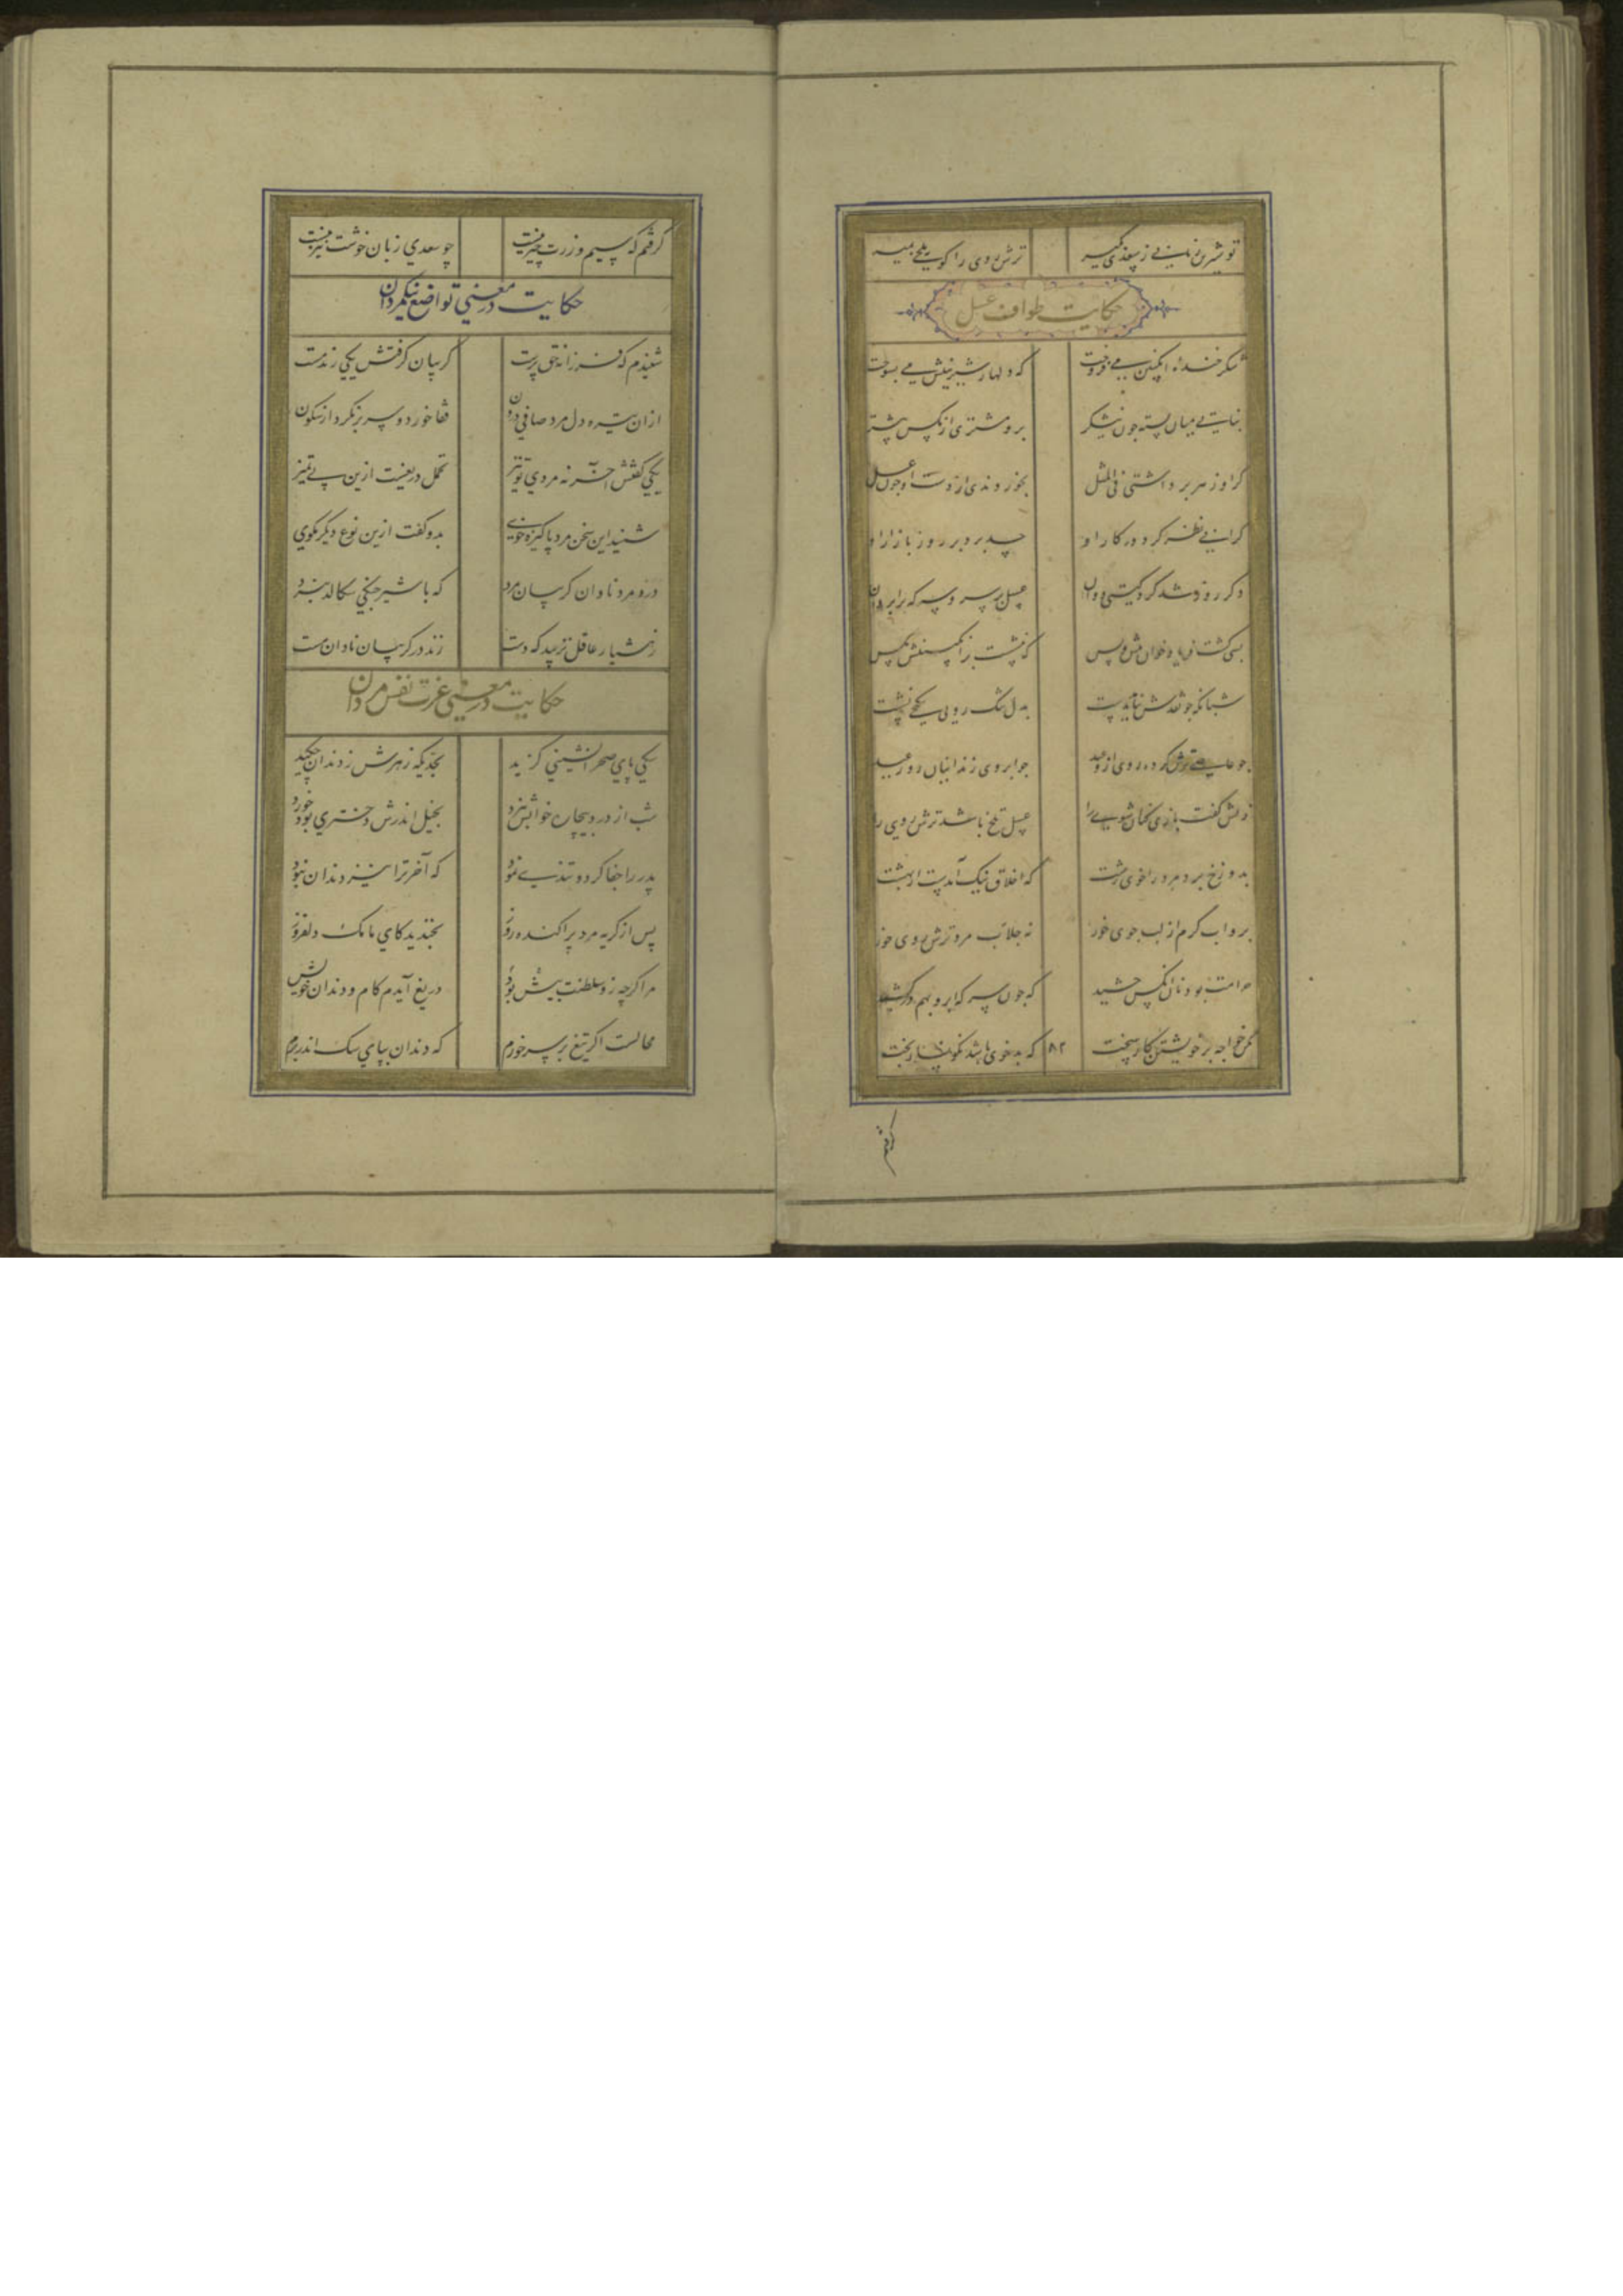 تو شیرین زبانی ز سعدی بگیر ترش روی را گو بتلخی بمیر
حکایت طواف عسل
شکر خنده انگبین می فروخت که دلها ز شیرینیش می بسوخت
نباتی میان بسته چون نیشکر برو مشتری از مگس بیشتر
گر او زهر برداشتی فی المثل بخوردندی از دست او چون عسل
گرانی نظر کرد در کار او حسد برد بر روز بازار او
دگر روز شد گرد گیتی دوان عسل بر سر و سرکه بر ابروان
بسی گشت فریاد خوان پیش و پس که ننشست بر انگبینش مگس
شبانگه چو نقدش نیامد بدست بدل تنگ رویی بکنجی نشست
چو عاصی ترش کرده روی از وعید چو ابروی زندانیان روز عید
زنش گفت بازی کنان شوی را عسل تلخ باشد ترش روی را
بدوزخ برد مرد را خوی زشت که اخلاق نیک آمدست از بهشت
برو اب گرم از لب جوی خور نه جلاب سرد ترش روی خور
حرامت بود نان انکس چشید که چون سفره ابرو بهم درکشید
مکن خواجه بر خویشتن کار سخت که بدخوی باشد نگونسار بخت
۸۲
گرفتم
گرفتم که سیم و زرت چیز نیست چو سعدی زبان خوشت نیز نیست
حکایت در معنی تواضع نیکمردان
شنیدم که فرزانه حق پرست گریبان گرفتش یکی رند مست
ازان تیره دل مرد صافی درون قفا خورد و سر برنکرد از سکون
یکی گفتش آخر نه مردی تو نیز تحمل دریغست ازین بی تمیز
شنید این سخن مرد پاکیزه خوی بدو گفت ازین نوع دیگر مگوی
درد مرد نادان گریبان مرد که با شیر جنگی سگالد نبرد
ز هشیار عاقل نزیبد که دست زند در گریبان نادان مست
حکایت در معنی عزت نفس مردان
یکی پای صحرا نشینی گزید بخدیکه زهرش ز دندان چکید
شب از درد بیچاره خوابش نبرد بخیل اندرش دختری بود خورد
پدر را جفا کرد و تندی نمود که آخر ترا نیز دندان نبود
پس از گریه مرد پراکنده روز بخندید کای مامک دلفروز
مرا گرچه زو سلطنت بیش بود دریغ آیدم کام و دندان خویش
محالست اگر تیغ بر سر خورم که دندان بپای سگ اندر برم